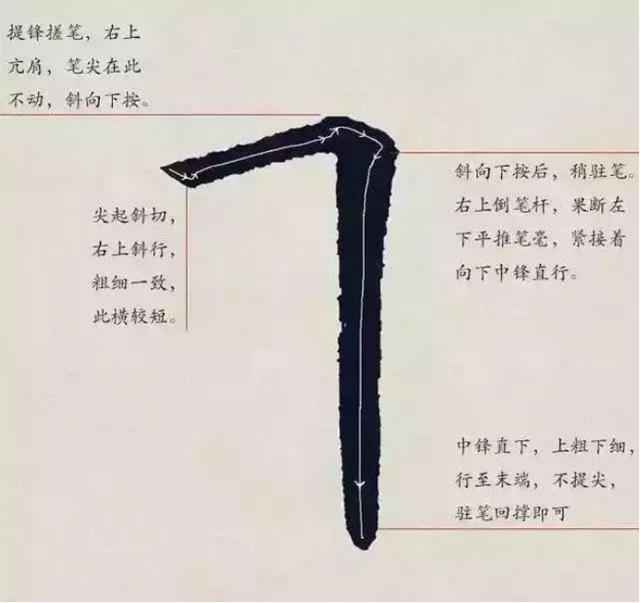 提锋搓笔，右上
亢肩，笔尖在此
不动，斜向下按。
斜向下按后，稍驻笔。
右上倒笔杆，果断左
下平推笔毫，紧接着
向下中锋直行。
尖起斜切，
右上斜行，
粗细一致，
此横较短。
中锋直下，上粗下细，
行至末端，不提尖，
驻笔回撑即可